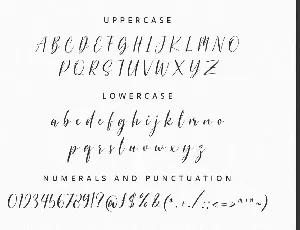 UPPERCASE
A B C D E F G H I J K L M N O
P Q R S T U V W X Y Z
LOWERCASE
a b c d e f g h i j k l m n o
p q r s t u v w x y z
NUMERALS AND PUNCTUATION
0123456789!?@$%&